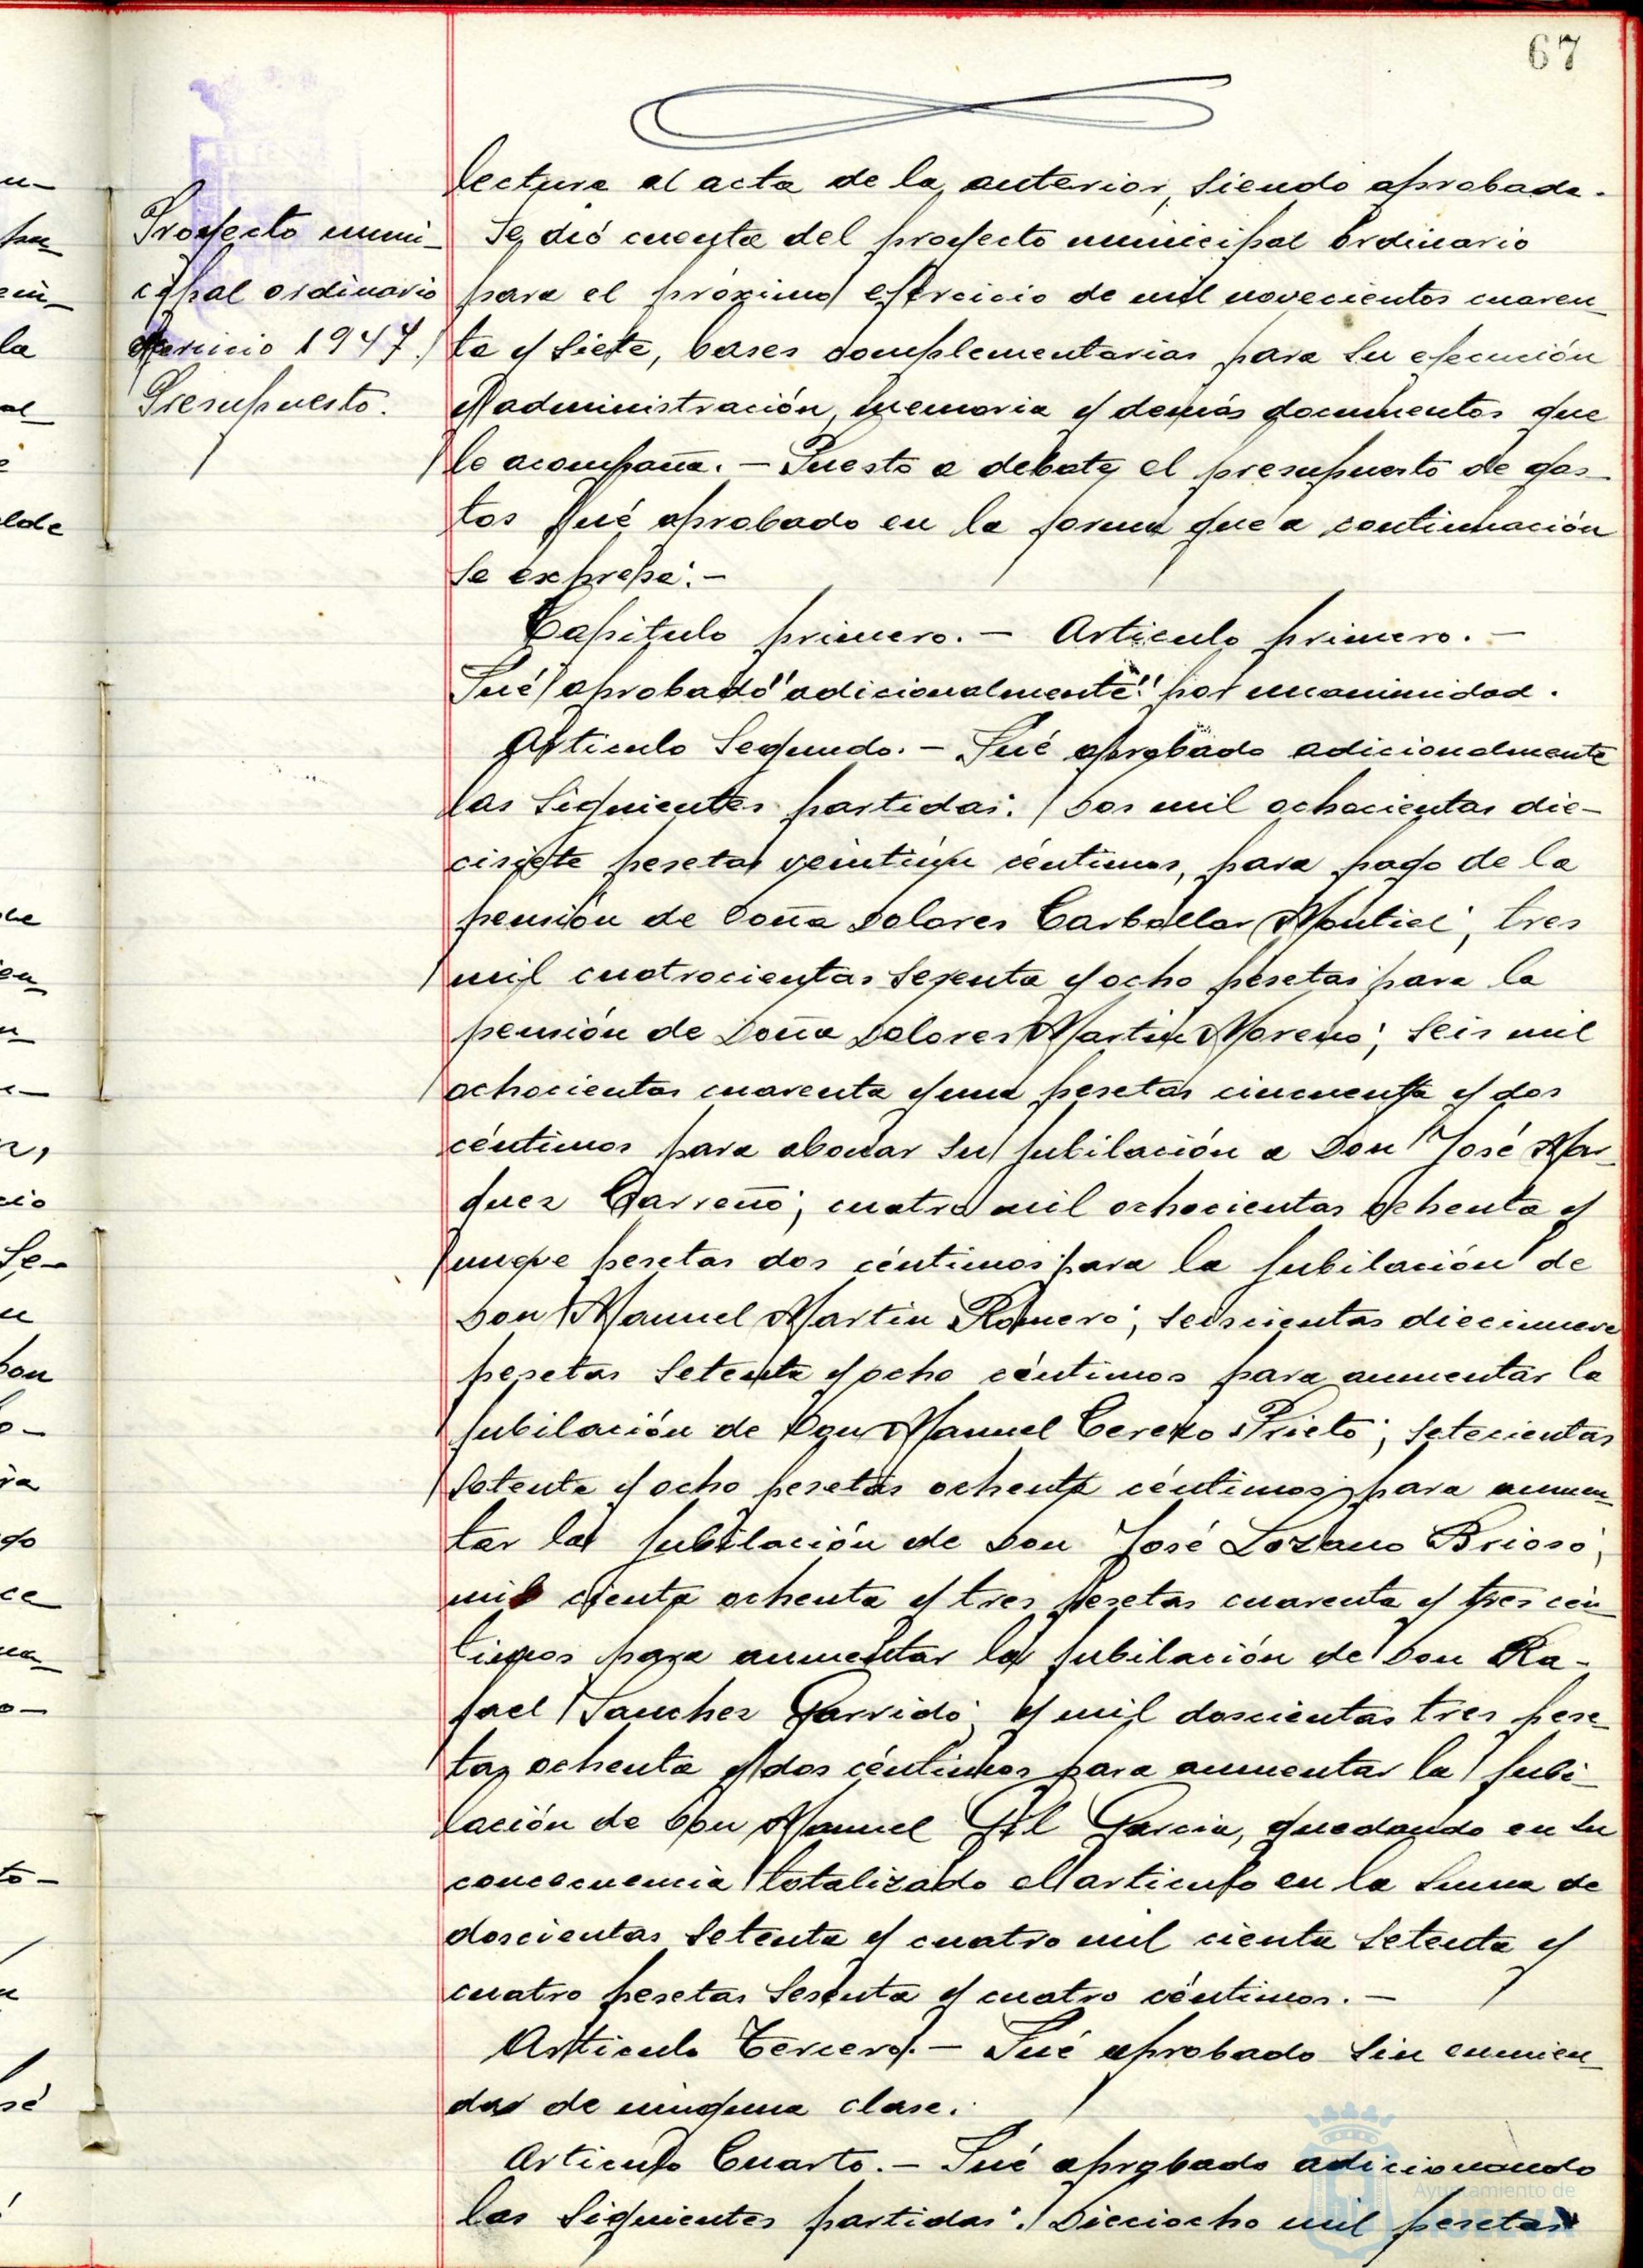 67
Proyecto muni-
cipal ordinario
ejercicio 1947.
Presupuesto.
lectura al acta de la anterior, siendo aprobada.
Se dió cuenta del proyecto municipal ordinario
para el próximo ejercicio de mil novecientos cuaren
ta y siete, bases complementarias para su ejecución
y administración, memoria y demás documentos que
le acompaña. — Puesto a debate el presupuesto de gas-
tos fué aprobado en la forma que a continuación
se expresa: —
Capitulo primero. — Articulo primero. —
Fué aprobado "adicionalmente" por unanimidad.
Articulo Segundo. — Fué aprobado adicionalmente
las siguientes partidas: Dos mil ochocientas die-
cisiete pesetas veintiun céntimos, para pago de la
pensión de Doña Dolores Carballar Montiel; tres
mil cuatrocientas sesenta y ocho pesetas para la
pensión de Doña Dolores Martin Moreno; seis mil
ochocientas cuarenta y una pesetas cincuenta y dos
céntimos para abonar su jubilación a Don José Mar-
quez Carreño; cuatro mil ochocientas ochenta y
nueve pesetas dos céntimos para la jubilación de
Don Manuel Martin Romero; seiscientas diecinueve
pesetas setenta y ocho céntimos para aumentar la
jubilación de Don Manuel Cerezo Prieto; setecientas
setenta y ocho pesetas ochenta céntimos para aumen-
tar la jubilación de Don José Lozano Brioso;
mil cienta ochenta y tres pesetas cuarenta y tres cén-
timos para aumentar la jubilación de Don Ra-
fael Sanchez Garrido; y mil doscientas tres pese-
tas ochenta y dos céntimos para aumentar la jubi-
lación de Don Manuel Gil Garcia, quedando en su
concecuencia totalizado el articulo en la suma de
doscientas setenta y cuatro mil cienta setenta y
cuatro pesetas sesenta y cuatro céntimos. —
Articulo Tercero. — Fué aprobado sin enmien-
das de ninguna clase.
Articulo Cuarto. — Fué aprobado adicionando
las siguientes partidas: Dieciocho mil pesetas
Ayuntamiento de
HUELVA